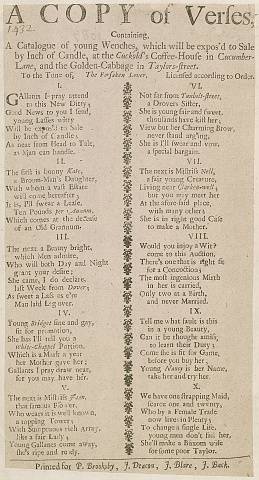 A COPY of Verses,
1432
Containing,
A Catalogue of young Wenches, which will be expos'd to Sale
by Inch of Candle, at the Cuckold's Coffee-House in Cucumber-
Lane, and the Golden-Cabbage in Taylors-street.
To the Tune of, The Forsaken Lover. Licensed according to Order.
I.
GAllants I pray attend
to this New Ditty;
Good News to you I send,
young Lasses witty
Will be expos'd to Sale
by Inch of Candle;
As neat from Head to Tale,
as Man can handle.
II.
The first is bonny Kate,
a Broom-Man's Daughter,
Who with a vast Estate
will come hereafter
It is, I'll swear a Lease,
Ten Pounds per Annum,
Which comes at the decease
of an Old Grannum.
III.
The next a Bonny bright,
which Men admire,
Who will both Day and Night
grant your desire;
She came, I do declare,
last Week from Dover;
As sweet a Lass as e'er
Man laid Leg over.
IV.
Young Bridget fine and gay,
fit for promotion,
She has I'll tell you a
White-Chappel Portion,
Which is a Mark a year
her Mother gave her;
Gallants I pray draw near,
for you may have her.
V.
The next is Mistris
that famous
Who wears it is well known,
a topping Tower
With Sumptuous rich Array,
like a fair Lady;
Young Gallants come away,
she's ripe and ready.
VI.
Not far from
a Drovers Sister,
She is young fair and sweet,
thousands have kist her;
View but her Charming Brow,
never stand
She is I'll swear and vow,
a special bargain.
VII.
The next is Mistris Nell,
a fair young Creature,
Living near
but you may meet her
At the afore-said place,
with many others
She is in right good Case
to make a Mother.
VIII.
Would you injoy a Wit?
come to this Auction,
There's one that is right fit
for a Concoction;
The most ingenious Mirth
in her is carried,
Only two at a Birth,
and never Married.
IX.
Tell me what fault is this
in a young Beauty,
Can it be thought amiss,
to learn their Duty;
Come she is fit for Game,
before you buy her;
Young Nancy is her Name,
take her and try her.
X.
We have one strapping Maid,
scarce one and twenty,
Who by a Female Trade
now lives in Plenty;
To change a single Life,
young men don't fail her,
She'll make a Buxom wife
for some poor Taylor.
Printed for P. Brooksby, J. Deacon, J. Blare, J. Back.